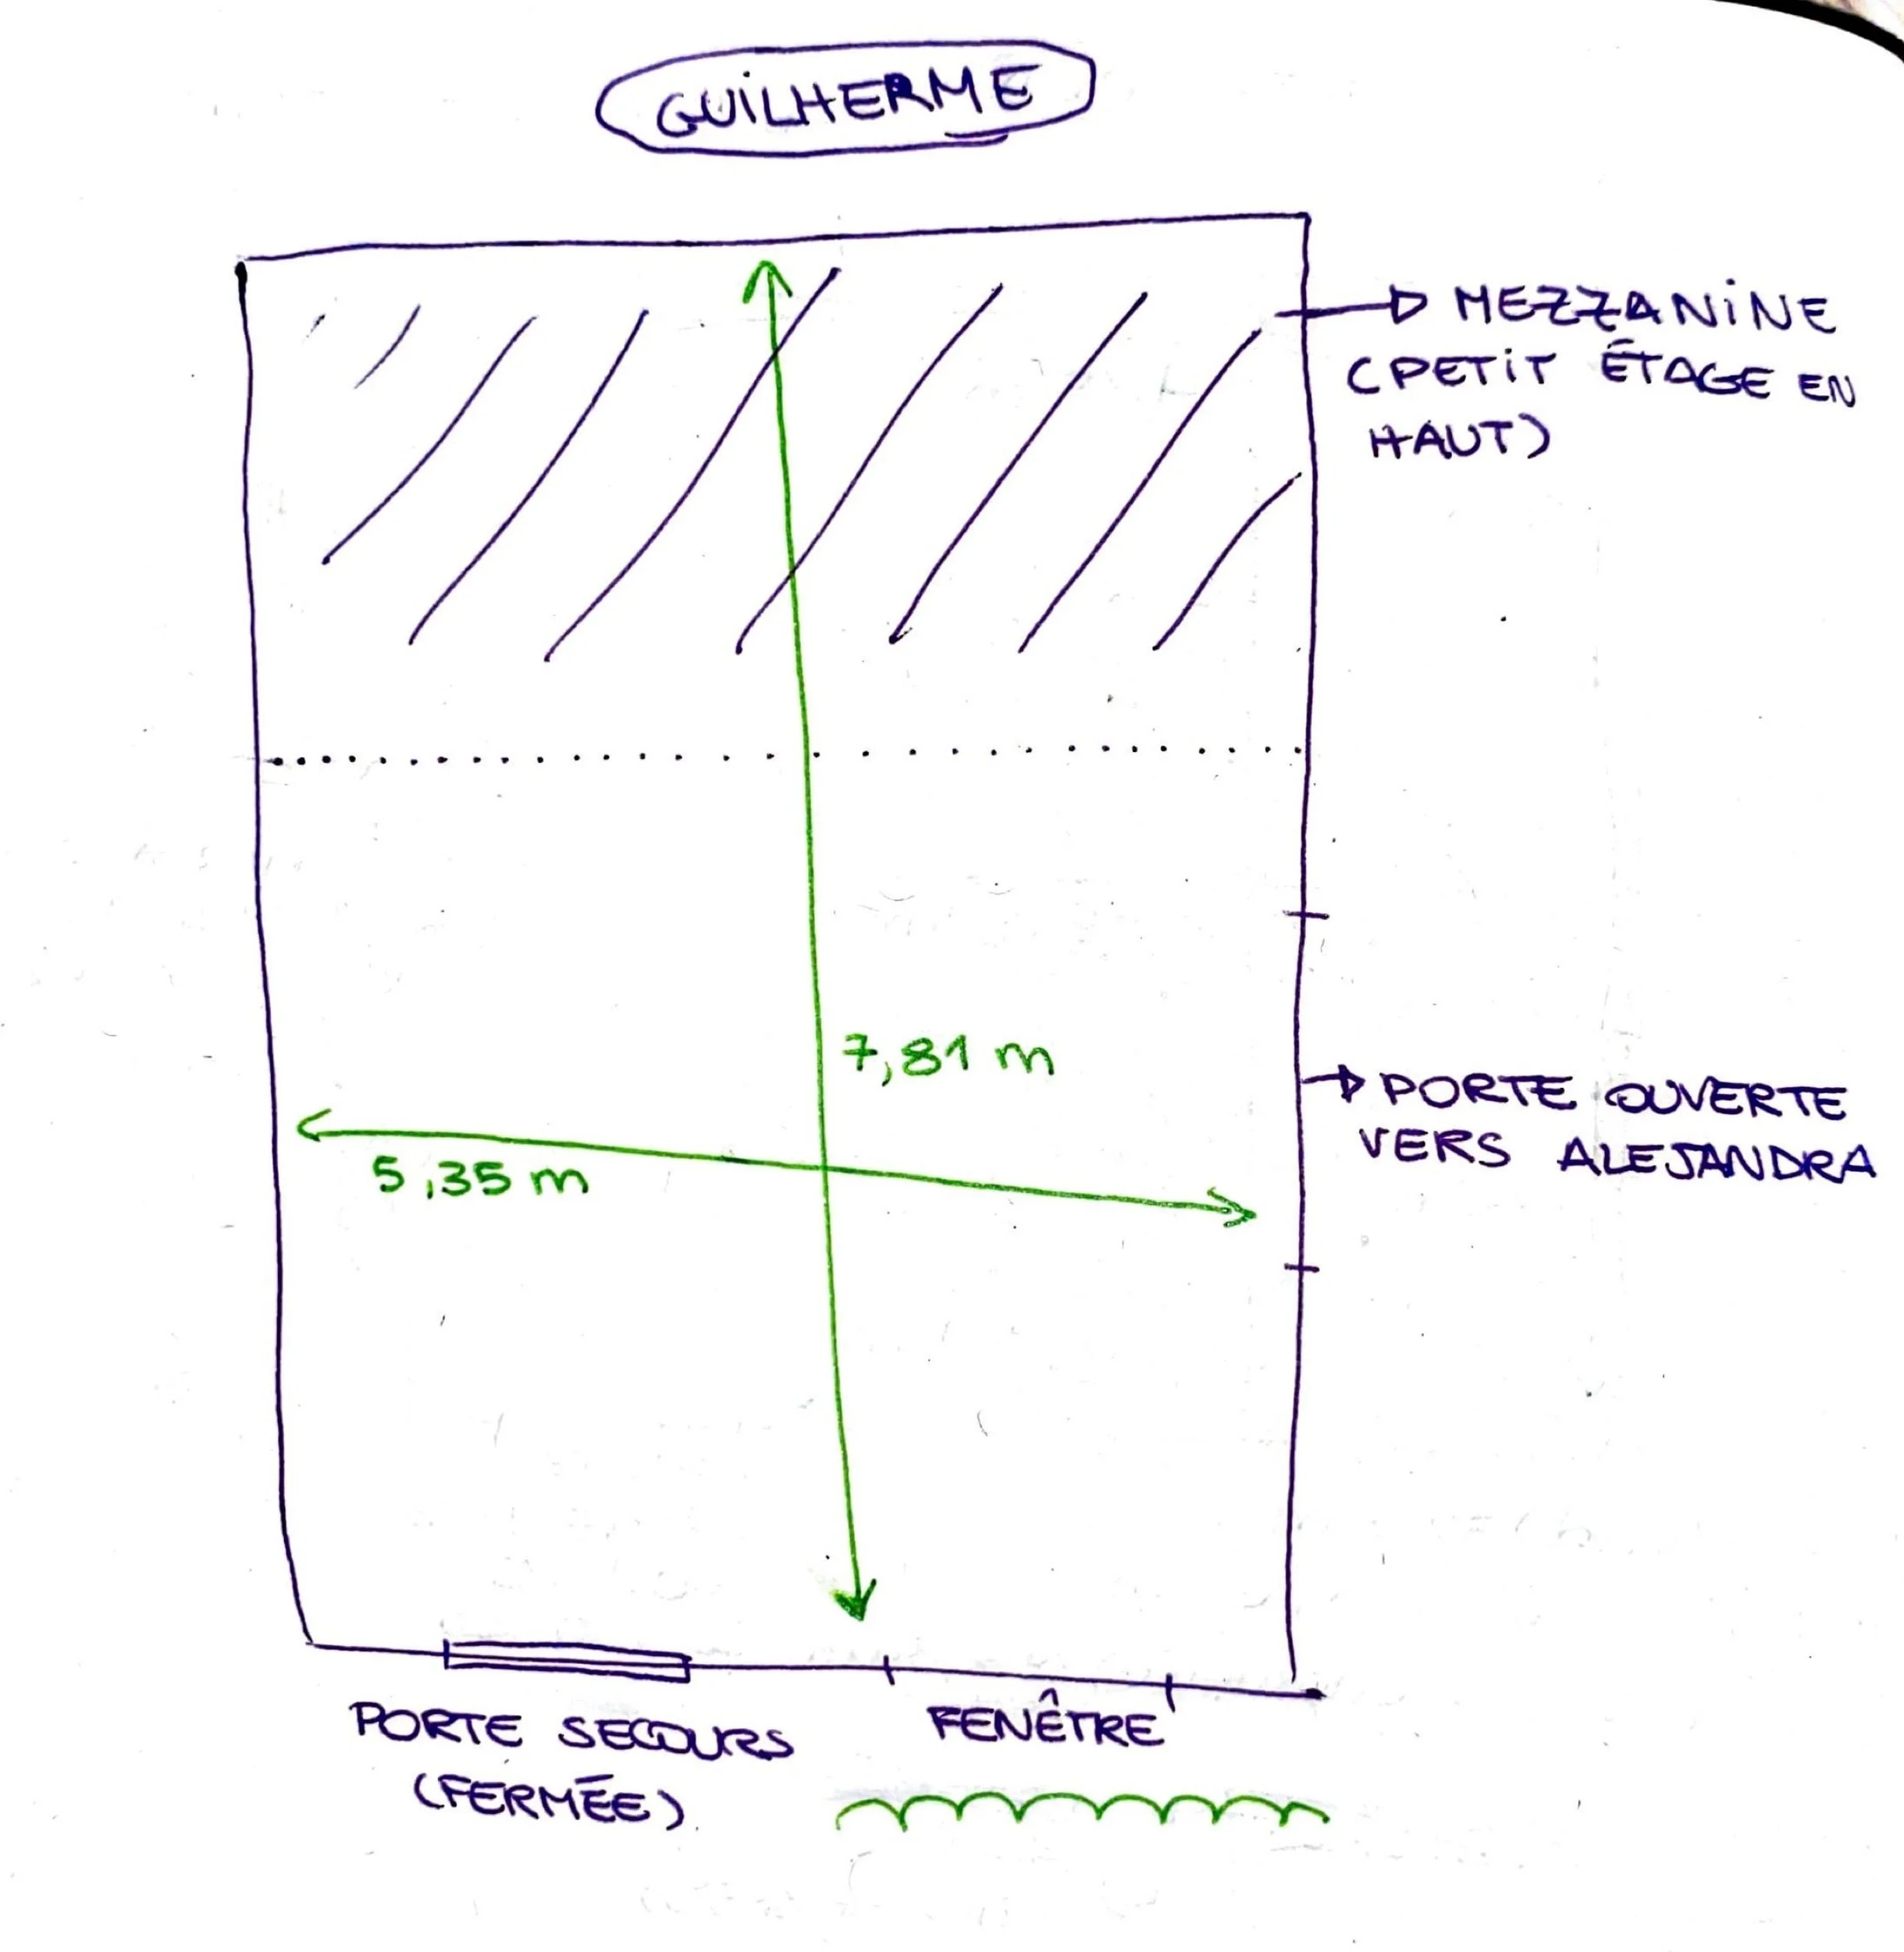 GUILHERME
MEZZANINE
(PETIT ÉTAGE EN
HAUT)
7,81 m
PORTE OUVERTE
VERS ALEJANDRA
5,35 m
PORTE SECOURS
(FERMÉE)
FENÊTRE